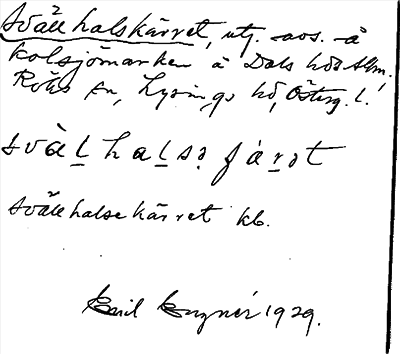 Svällhalskärret, utj. aos. å
Kolsjömarken å Dals hds allm.
Röks sn, Lysings hd, Österg. l.
svàḷhaḷsə ʃárət
Svällhalsekärret kb.
Emil 1929.